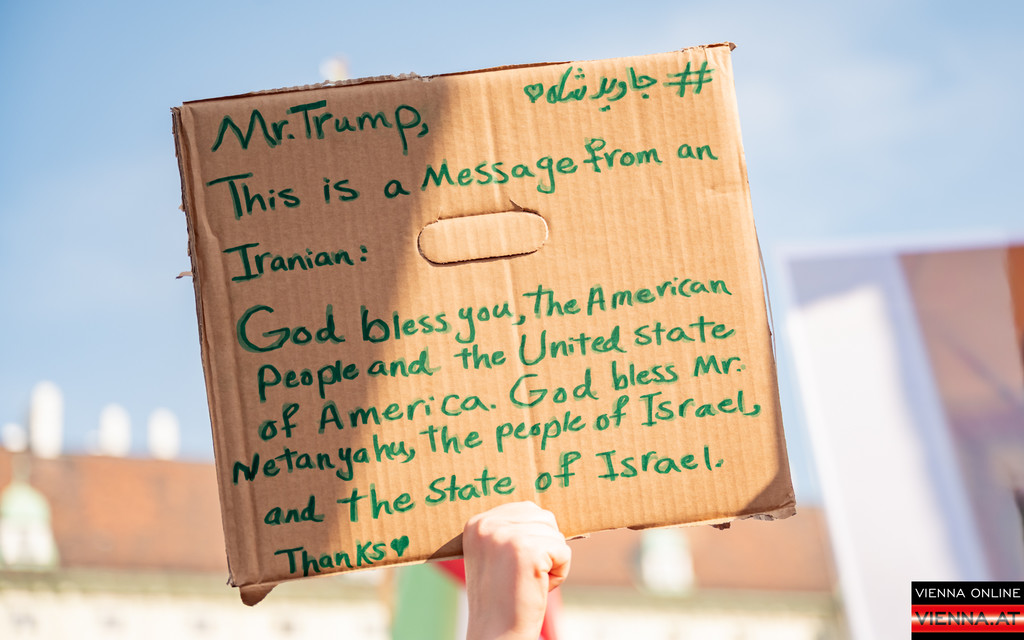 #جاوید شاه♡
Mr. Trump,
This is a Message from an
Iranian:
God bless you, The American
People and the United state
of America. God bless Mr.
Netanyahu, the people of Israel,
and the State of Israel.
Thanks♥
VIENNA ONLINE
VIENNA.AT